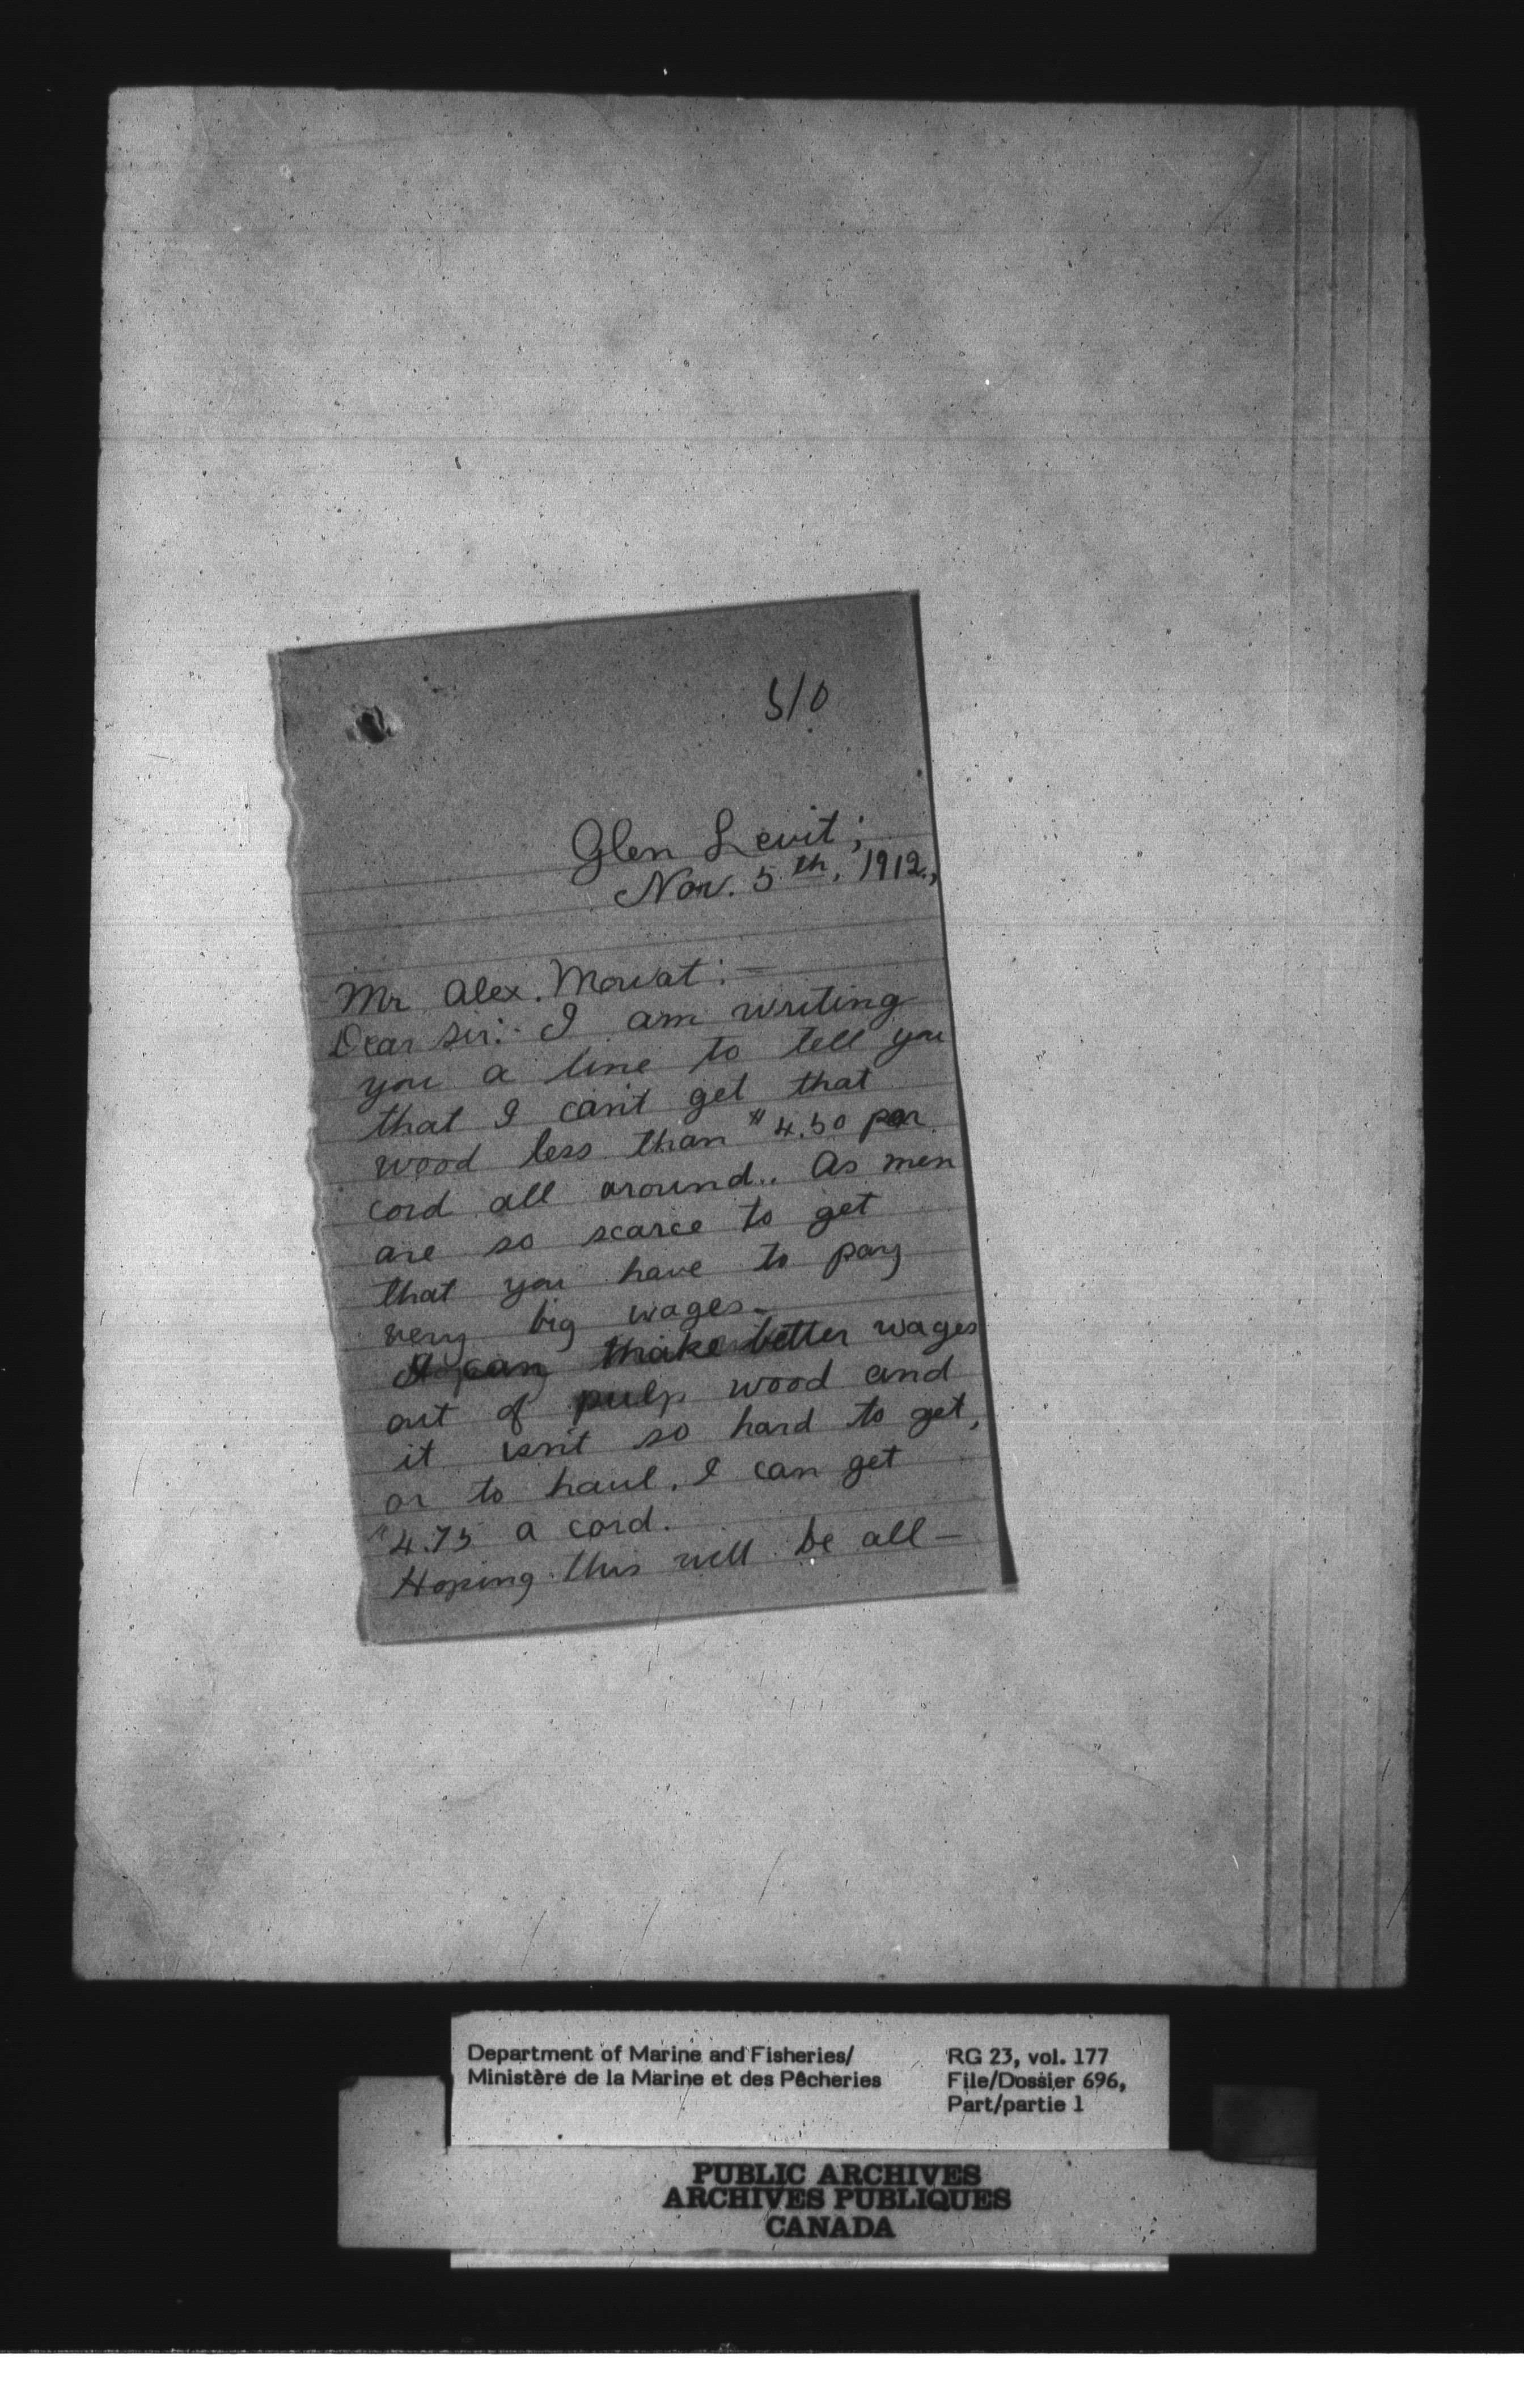 510
Glen Levit;
Nov. 5th, 1912.,
Mr. Alex. Mowat:—
Dear Sir:- I am writing
you a line to tell you
that I can't get that
wood less than $4.50 per
cord all around.. As men
are so scarce to get
that you have to pay
very big wages.
I can make better wages
out of pulp wood and
it isn't so hard to get,
or to haul, I can get
$4.75 a cord.
Hoping this will be all—
Department of Marine and Fisheries/
Ministère de la Marine et des Pêcheries
RG 23, vol. 177
File/Dossier 696,
Part/partie 1
PUBLIC ARCHIVES
ARCHIVES PUBLIQUES
CANADA